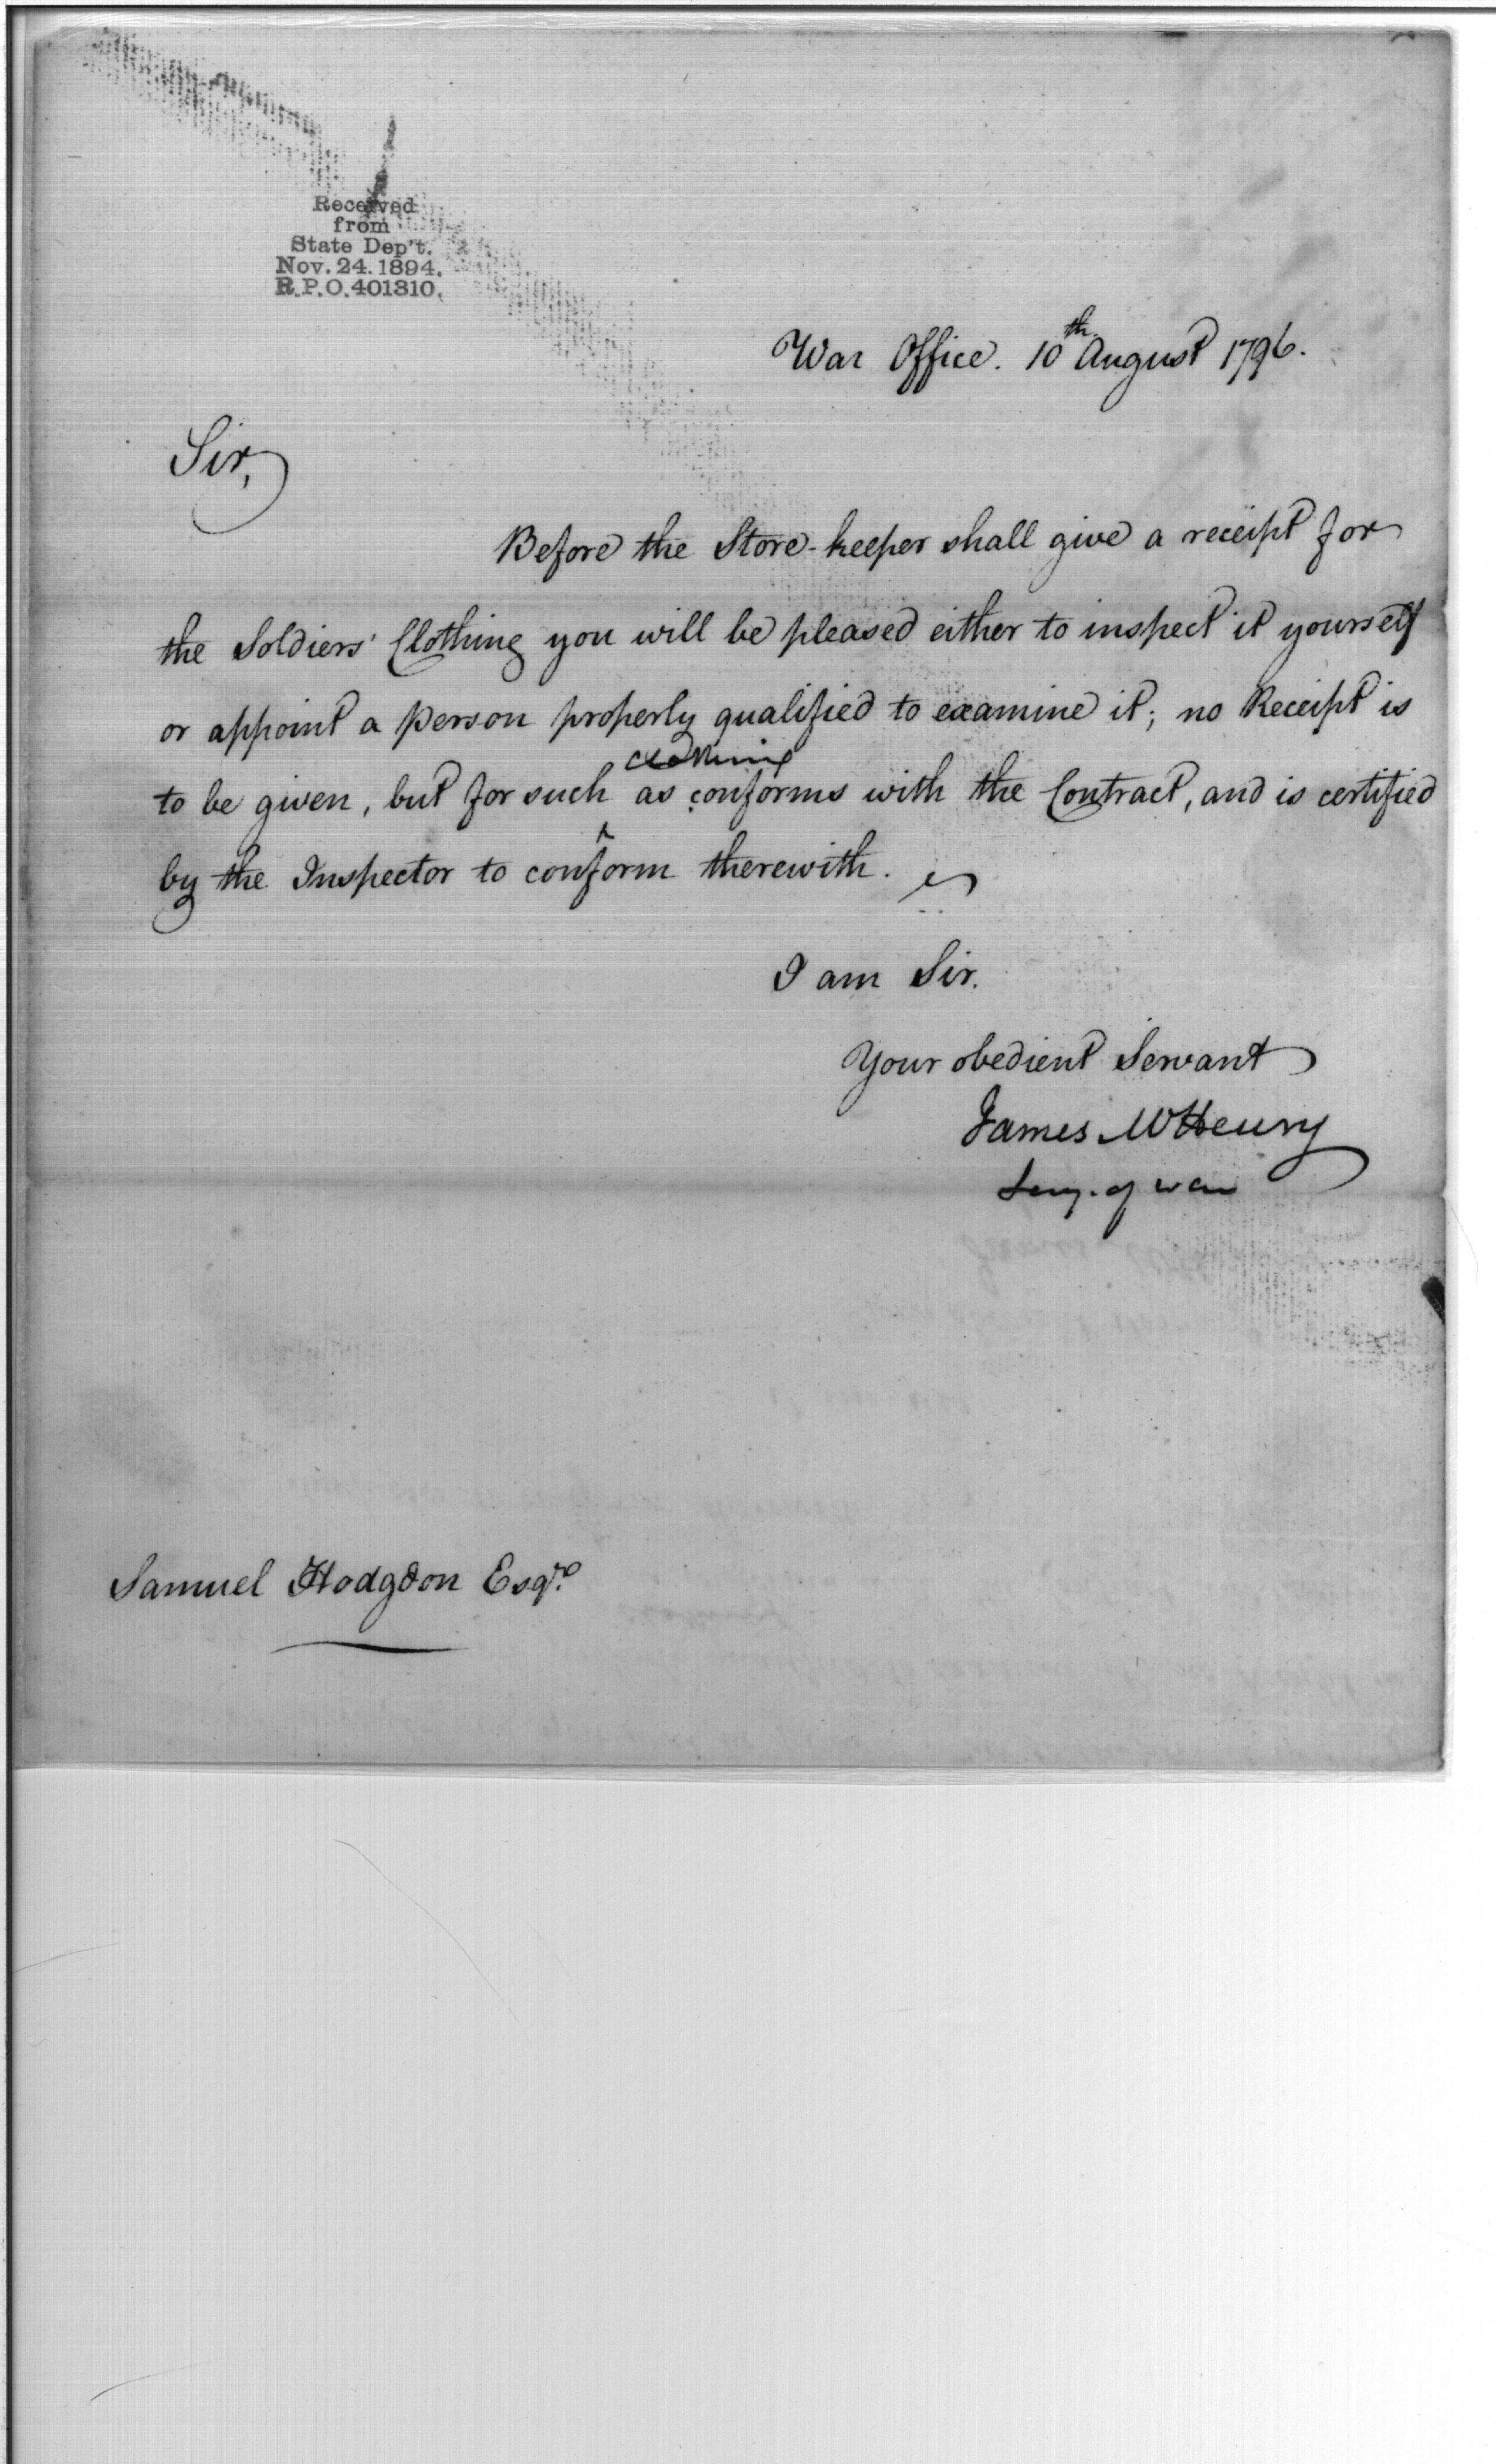 Received
from
State Dep't.
Nov. 24. 1894.
R.P.O. 401310.
War Office. 10th August 1796.
Sir,
Before the Store-keeper shall give a receipt for
the Soldiers' Clothing you will be pleased either to inspect it yourself
or appoint a person properly qualified to examine it; no Receipt is
clothing
to be given, but for such as conforms with the Contract, and is certified
by the Inspector to conform therewith.
I am Sir.
Your obedient Servant
James McHenry
Secy. of war
Samuel Hodgdon Esqre.